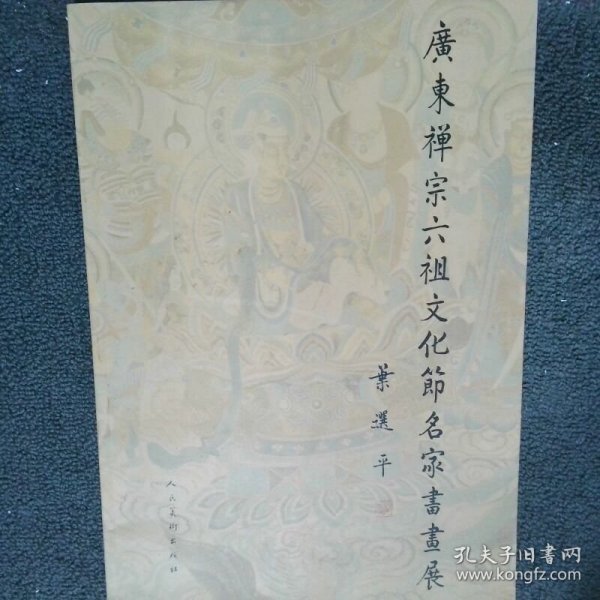 廣東禅宗六祖文化節名家書畫展
葉選平
人民美術出版社
孔夫子旧書网
www.kongfz.com